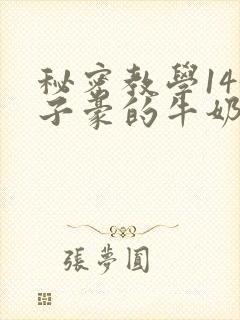 秘密教學14
子豪的牛奶
張夢圓